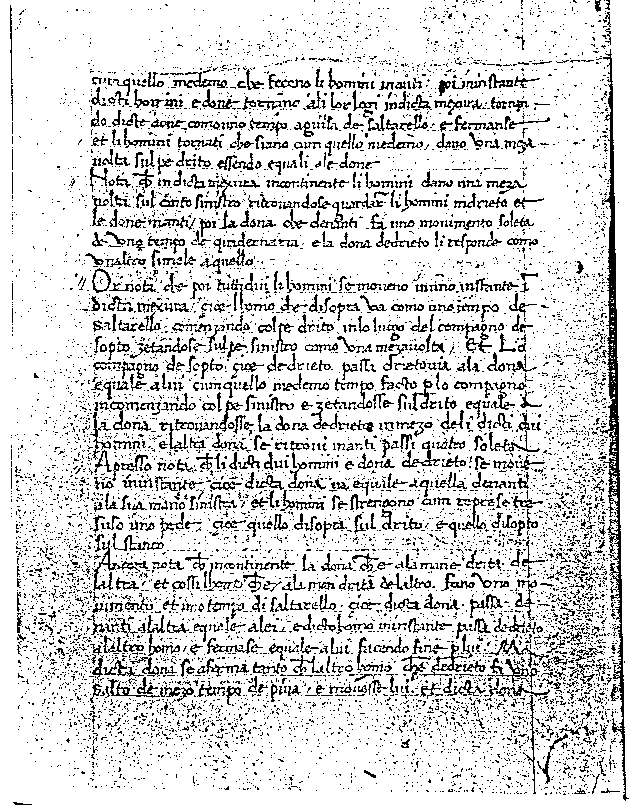 cum quello medemo che feceno li homini inanti poi in instante
dicti homini e done tornano ali lor logi in dicta mexura tornan
do dicte done como uno tempo a guisa de saltarello e fermanse
et li homini tornati che siano cum quello medemo dano una meza
volta sul pe drito essendo equali ale done
Nota ch in dicta mexura incontinente li homini dano una meza
volta sul canto sinistro ritrovandose li homini indrieto et
le done inanti poi la dona che denanti fa uno movimento soleta
de uno tempo de quadernaria e la dona dedrieto li responde como
uno altro simele a quello
Or nota che poi tutti dui li homini se moveno in uno instante I
dicta mexura cioe lhomo de disopra va como uno tempo de
saltarello comenzando col pe drito in lo luogo del compagno de
sopto zetandose sul pe sinistro como una meza volta Et Lo
compagno de sopto cioe dedrieto passa drieto via ala dona
equale a lui cum quello medemo tempo facto p lo compagno
incomenzando col pe sinistro e zetandosse sul drito equale a
la dona ritrovandosse la dona dedrieto in mezo deli dicti dui
homini e laltra dona se ritrovi inanti passi quatro soleta
Apresso nota ch li dicti dui homini e dona dedrieto se move
no in instante cioe dicta dona va equale a quella denanti
a la sua mano sinistra et li homini se strengono cum represe tre
suso uno pede cioe quello disopra sul drito e quello disopto
sul stanco
Ancora nota ch incontinente la dona ch e ala mane drita de
laltra et cossi lhomo ch e ala man drita de laltro fano uno mo
vimento et uno tempo di saltarello cioe dicta dona passa de
nanti a laltra equale a lei e dicto homo in instante passa dedrieto
a laltro homo e fermase equale a lui facendo fine p lui Ma
dicta dona se aferma tanto ch laltro homo che dedrieto fa uno
salto de mezo tempo de piva e movesse lui et dicta dona